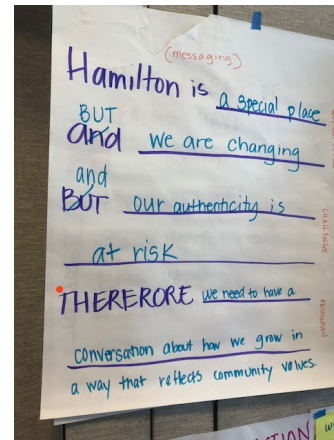 (messaging)
Hamilton is a special place
BUT
and we are changing
and
BUT our authenticity is
at risk
THERERORE we need to have a
conversation about how we grow in
a way that reflects community values.
CHALLENGE